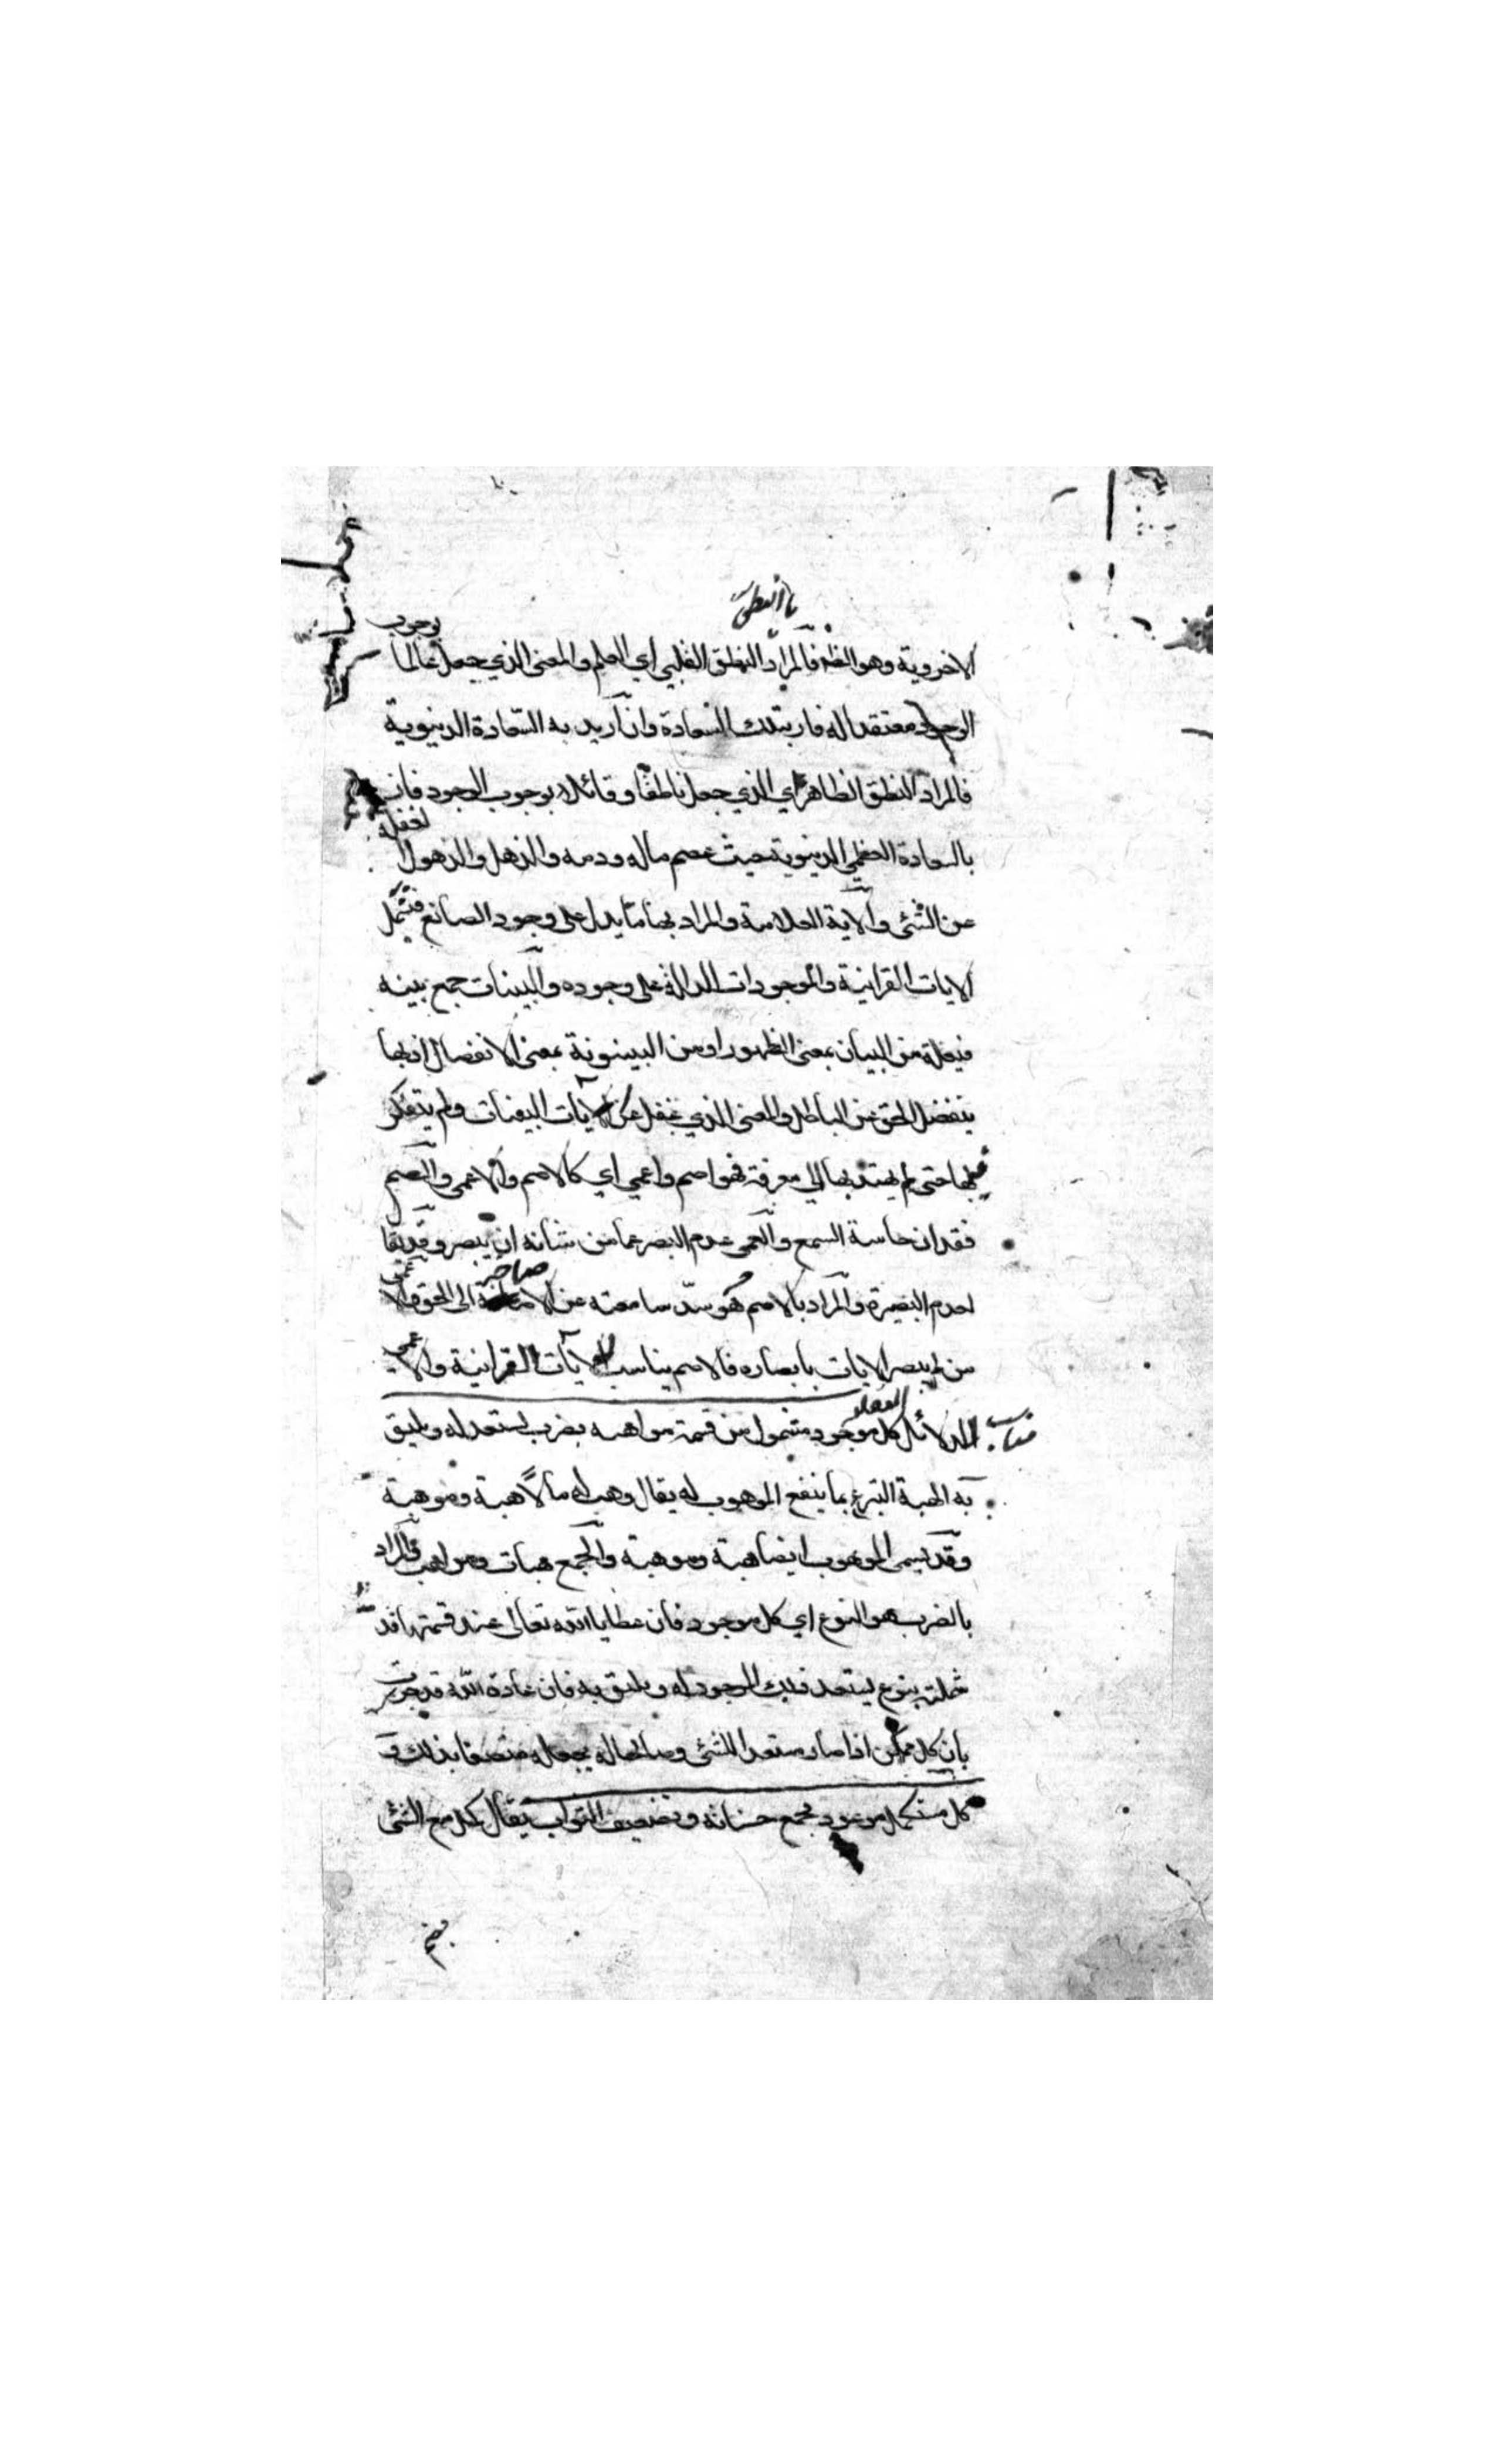 الاخروية وهو الظ فالمراد النطق القلبي اي العلم والمعنى الذي جعل عالما بوجوب
الوجود معتقدا له فاز بتلك السعادة وان اريد به السعادة الدنيوية
فالمراد النطق الظاهر اي الذي جعل ناطقا وقائلا بوجوب الوجود فاز
بالسعادة العظمى الدنيوية حيث عصم ماله ودمه والذهل والذهول لغفلة
عن الشئ والآية العلامة والمراد بها ما يدل على وجود الصانع فتشمل
الايات القرانية والموجودات الدالة على وجوده والبينات جمع بينه
فيعلة من البيان بمعنى الظهور او من البينونة بمعنى الانفصال اذ بها
ينفصل الحق عن الباطل والمعنى الذي غفل عن الآيات البينات ولم يتفكر
فيها حتى لم يهتد بها الى معرفة فهو اصم واعمى اي كالاصم والاعمى والصم
فقدان حاسة السمع والعمى عدم البصر عما من شانه ان يبصر وقد يقا
لعدم البصيرة والمراد بالاصم هو سدّ سامعته عن الى الحق والاعمى
من لم يبصر الايات بابصاره فالاصم يناسب الآيات القرانية والاعمى
الدلائل كل موجود مشمول من قسمة مواهبه بضرب يستعد له ويليق
به الهبة التبرع بما ينفع الموهوب له يقال وهب له مالاً هبة وموهبة
وقد يسمى الموهوب ايضا هبة وموهبة والجمع هبات ومواهب فالمراد
بالضرب هو النوع اي كل موجود فان عطايا الله تعالى عند قسمتها قد
شملته بنوع يستعد ذلك الموجود له ويليق به فان عادة الله قد جرت
بان كل ممكن اذا صار مستعدا للشئ وصالحا له يجعله متصفا بذلك و
كل مستكمل موعود بجمع حسناته وتضعيف الثواب يقال كمل مع الشئ